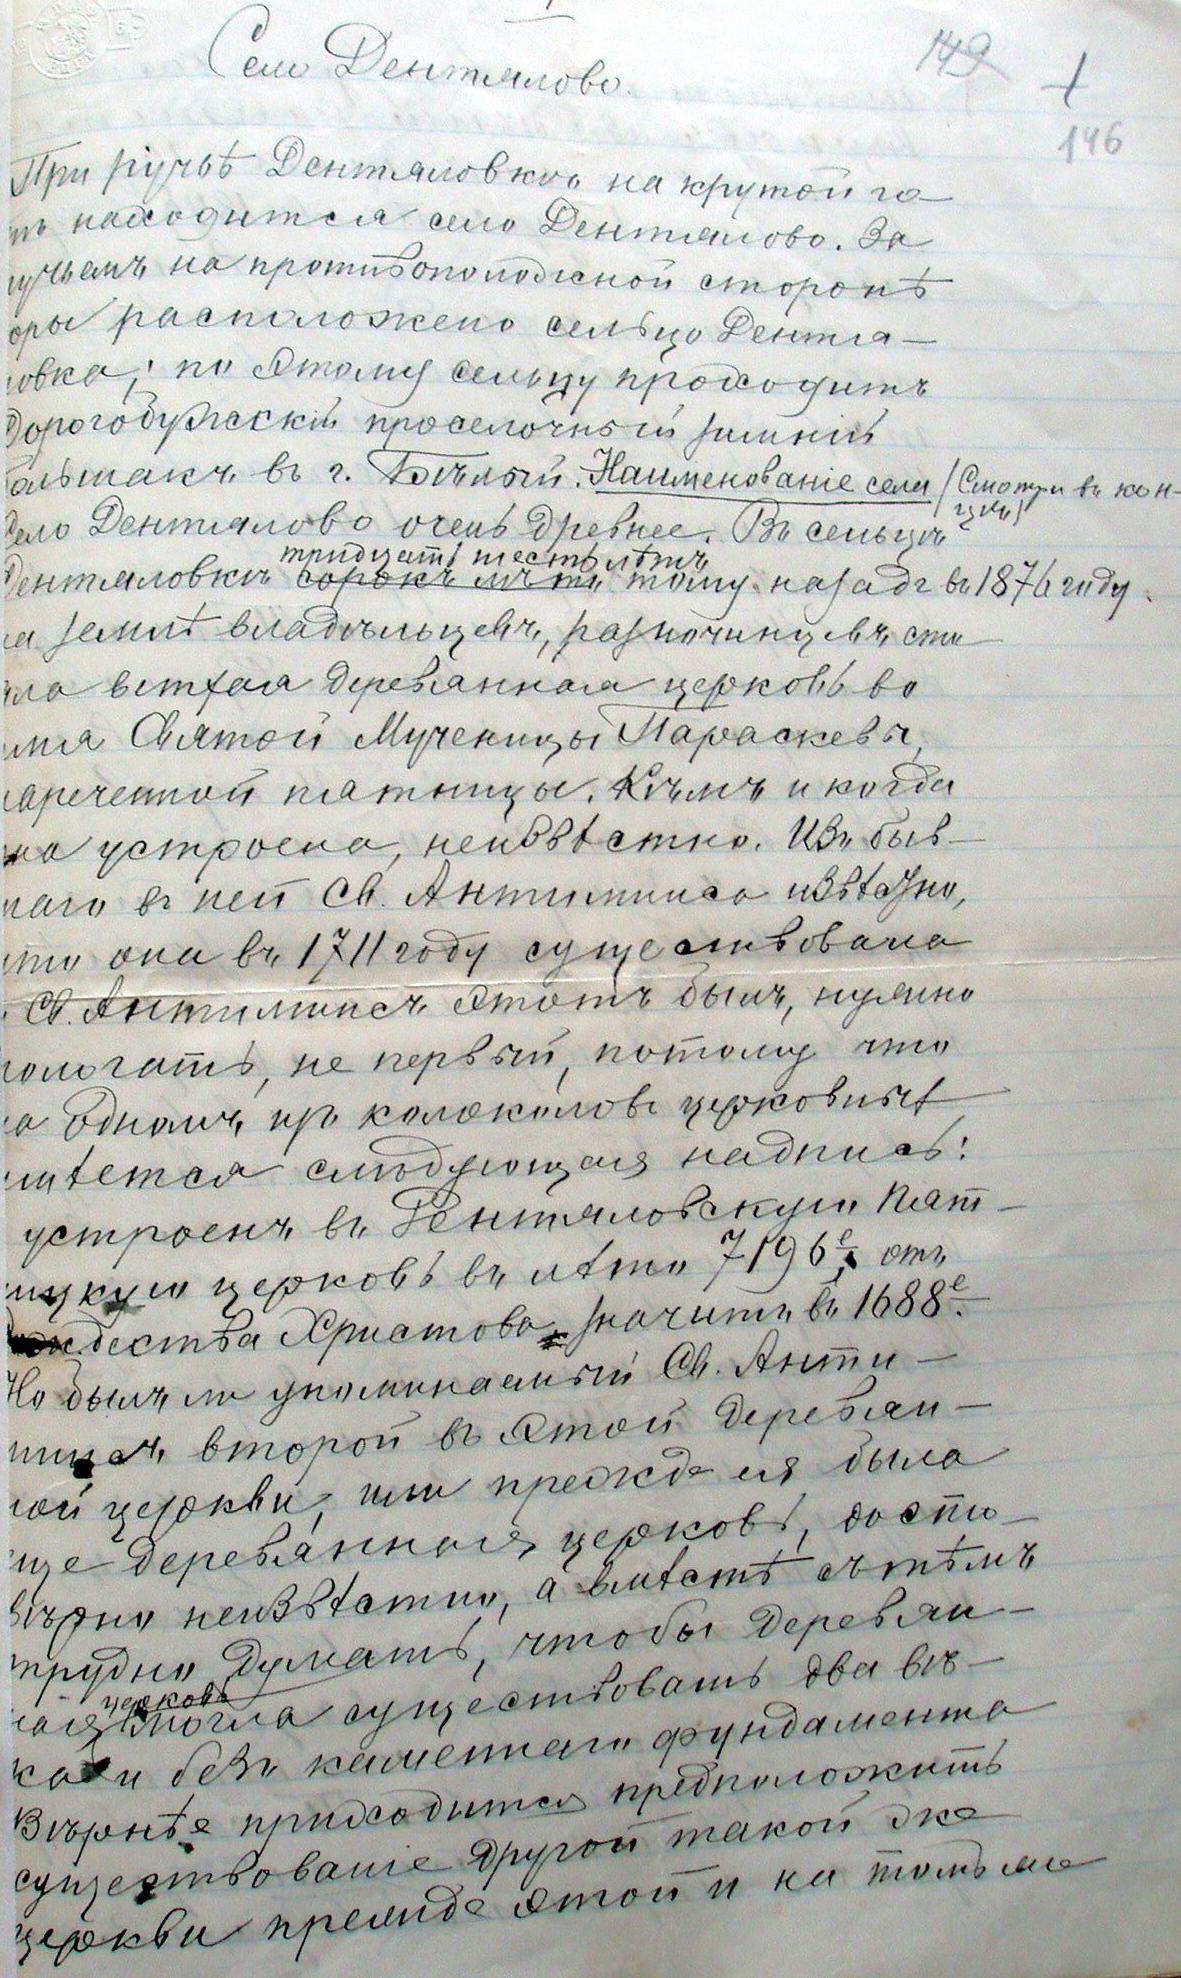 Село Дентялово.
149
146
При ручьѣ Дентяловкѣ на крутой го-
рѣ находится село Дентялово. За
ручьемъ на противоположной сторонѣ
горы расположено сельцо Дентя-
ловка; по этому сельцу проходитъ
Дорогобужскій проселочный зимній
большакъ въ г. Бѣлый. Наименованіе села (Смотри въ кон-
цѣ)
село Дентялово очень древнее. Въ сельцѣ
тридцать шесть лѣтъ
Дентяловкѣ сорокъ лѣтъ тому назадъ въ 1876 году
на землѣ владѣльцевъ, разночинцевъ сто
яла ветхая деревянная церковь во
имя Святой Мученицы Параскевы,
нареченной пятницы. Кѣмъ и когда
она устроена, неизвѣстно. Изъ быв-
шаго въ ней Св. Антиминса извѣстно,
что она въ 1711 году существовала
Св. Антиминсъ этотъ былъ, нужно
пологать, не первый, потому что
на одномъ изъ колоколовъ церковныхъ
имѣется слѣдующая надпись:
устроенъ въ Дентяловскую Пят-
ницкую церковь въ лѣто 7196е, отъ
Рождества Христова значитъ въ 1688е.
Но былъ ли упоминаемый Св. Анти-
минсъ второй въ этой деревян-
ной церкви, или прежде ея была
еще деревянная церковь, досто-
вѣрно неизвѣстно, а вмѣстѣ съ тѣмъ
трудно думать, чтобы деревян-
церковь
ная могла существовать два вѣ-
ка и безъ каменнаго фундамента
Вѣрнѣе приходится предположить
существованіе другой такой же
церкви прежде этой и на томъ же